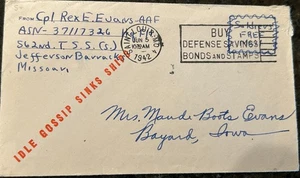 FROM Cpl Rex E. Evans-AAF
ASN-37117326
562nd T.S.S. (s)
Jefferson Barracks
Missouri
SAINT LOUIS, MO.
JUN 5
10 AM
1942
BUY
DEFENSE SAVINGS
BONDS AND STAMPS
FREE
IDLE GOSSIP SINKS SHIPS
Mrs. Maude Boots Evans
Bayard, Iowa